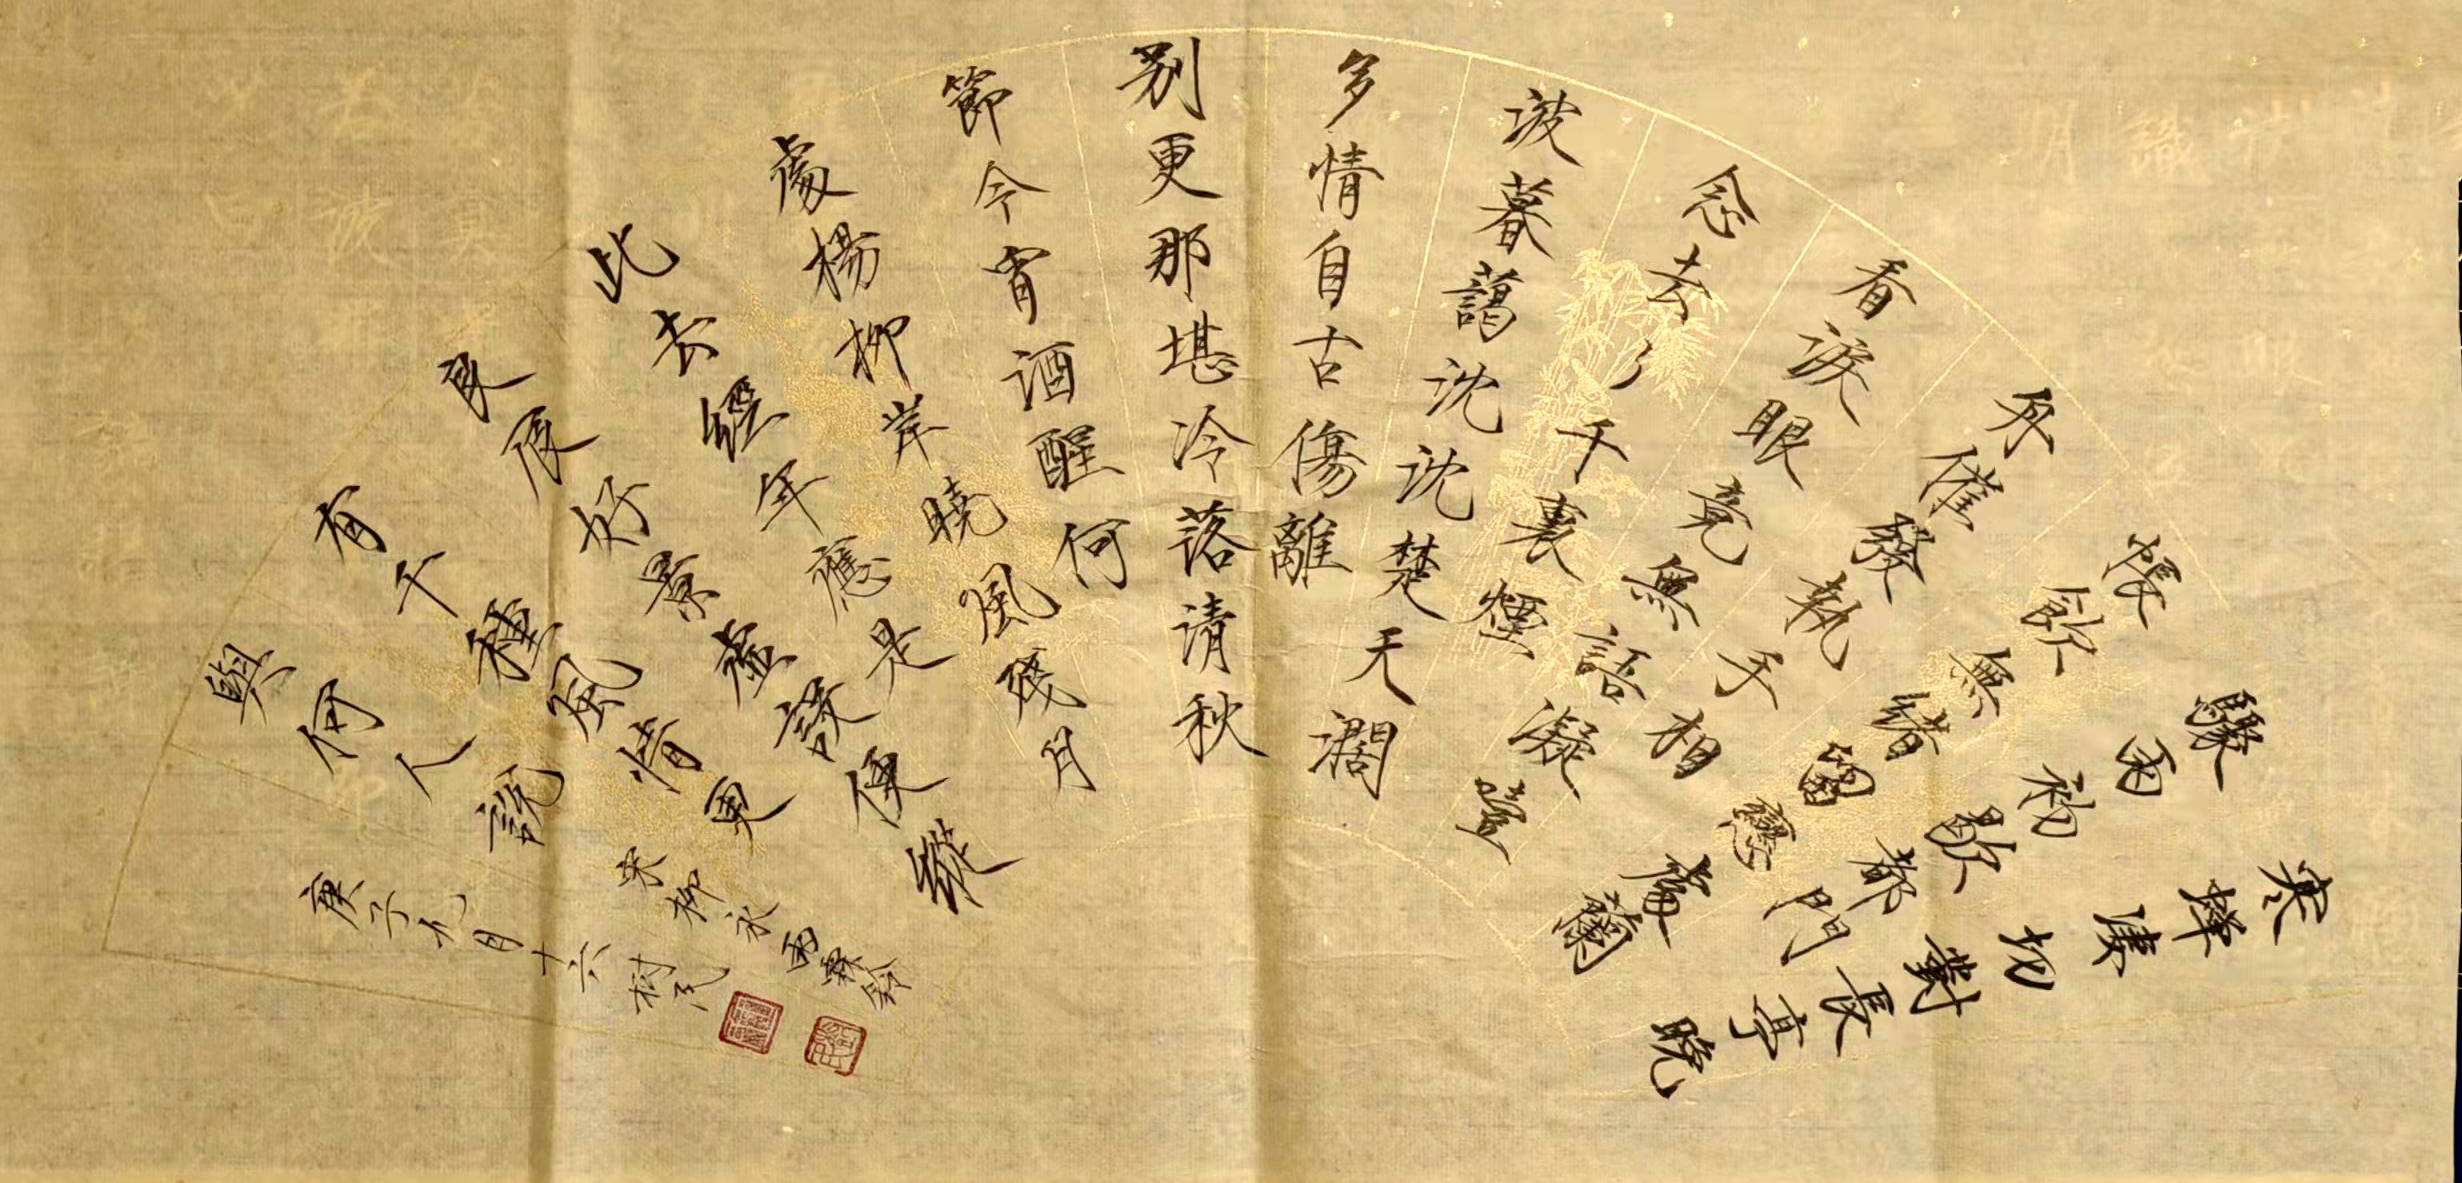 寒蟬淒切對長亭晚
驟雨初歇都門
帳飲無緒留戀處蘭
舟催發執手相
看淚眼竟無語凝噎
念去々千裏煙
波暮藹沈沈楚天濶
多情自古傷離
別更那堪冷落清秋
節今宵酒醒何
處楊柳岸曉風殘月
此去經年應是
良辰好景虛設便縱
有千種風情更
與何人說
宋柳永雨霖鈴
庚子九月十六樹